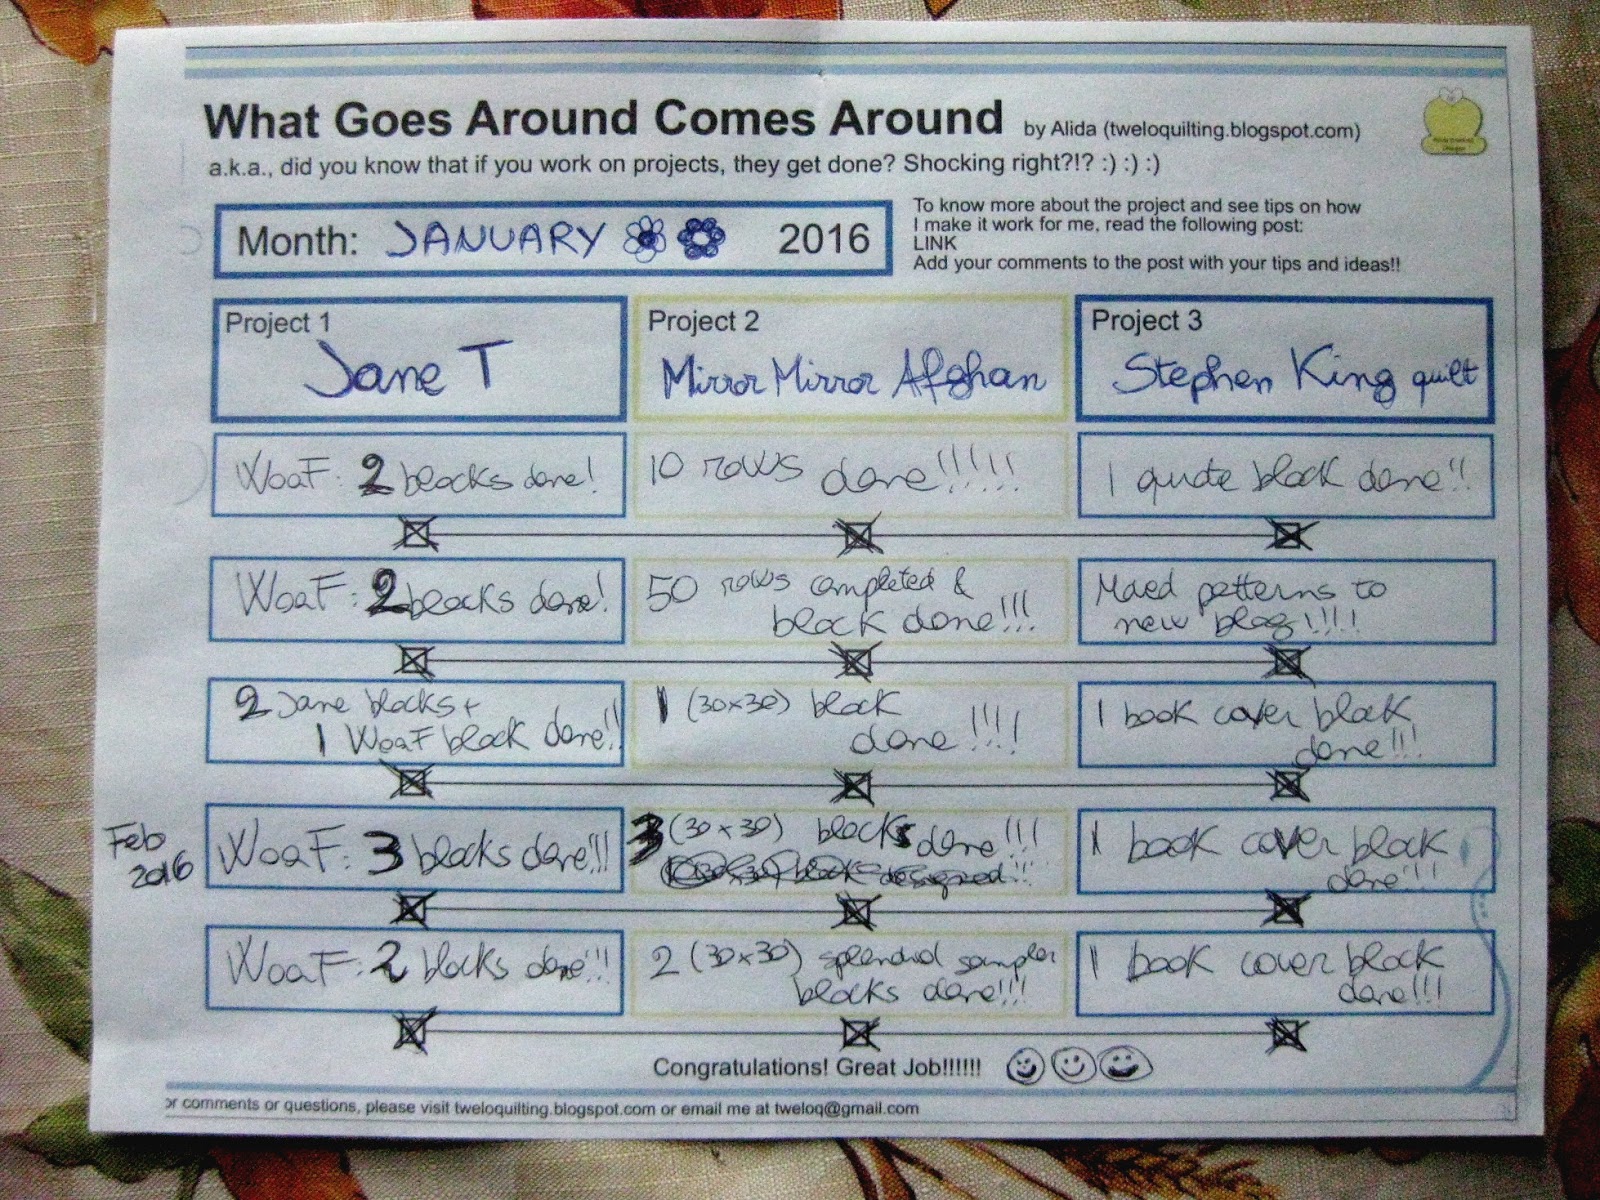 What Goes Around Comes Around by Alida (tweloquilting.blogspot.com)
a.k.a., did you know that if you work on projects, they get done? Shocking right?!? :) :) :)
Month: JANUARY 2016
To know more about the project and see tips on how
I make it work for me, read the following post:
LINK
Add your comments to the post with your tips and ideas!!
Project 1
Jane T
Project 2
Mirror Mirror Afghan
Project 3
Stephen King quilt
WoaF: 2 blocks done!
10 rows done!!!!!
1 quote block done!!
WoaF: 2 blocks done!
50 rows completed &
block done!!!
patterns to
new blog!!!!
2 Jane blocks +
1 WoaF block done!!
1 (30x30) block
done!!!!
1 book cover block
done!!!
Feb
2016
WoaF: 3 blocks done!!!
3 (30x30) blocks done!!!
1 book cover block
done!!!
WoaF: 2 blocks done!!!
2 (30x30) splendid sampler
blocks done!!!
1 book cover block
done!!!
Congratulations! Great Job!!!!!!
or comments or questions, please visit tweloquilting.blogspot.com or email me at tweloq@gmail.com